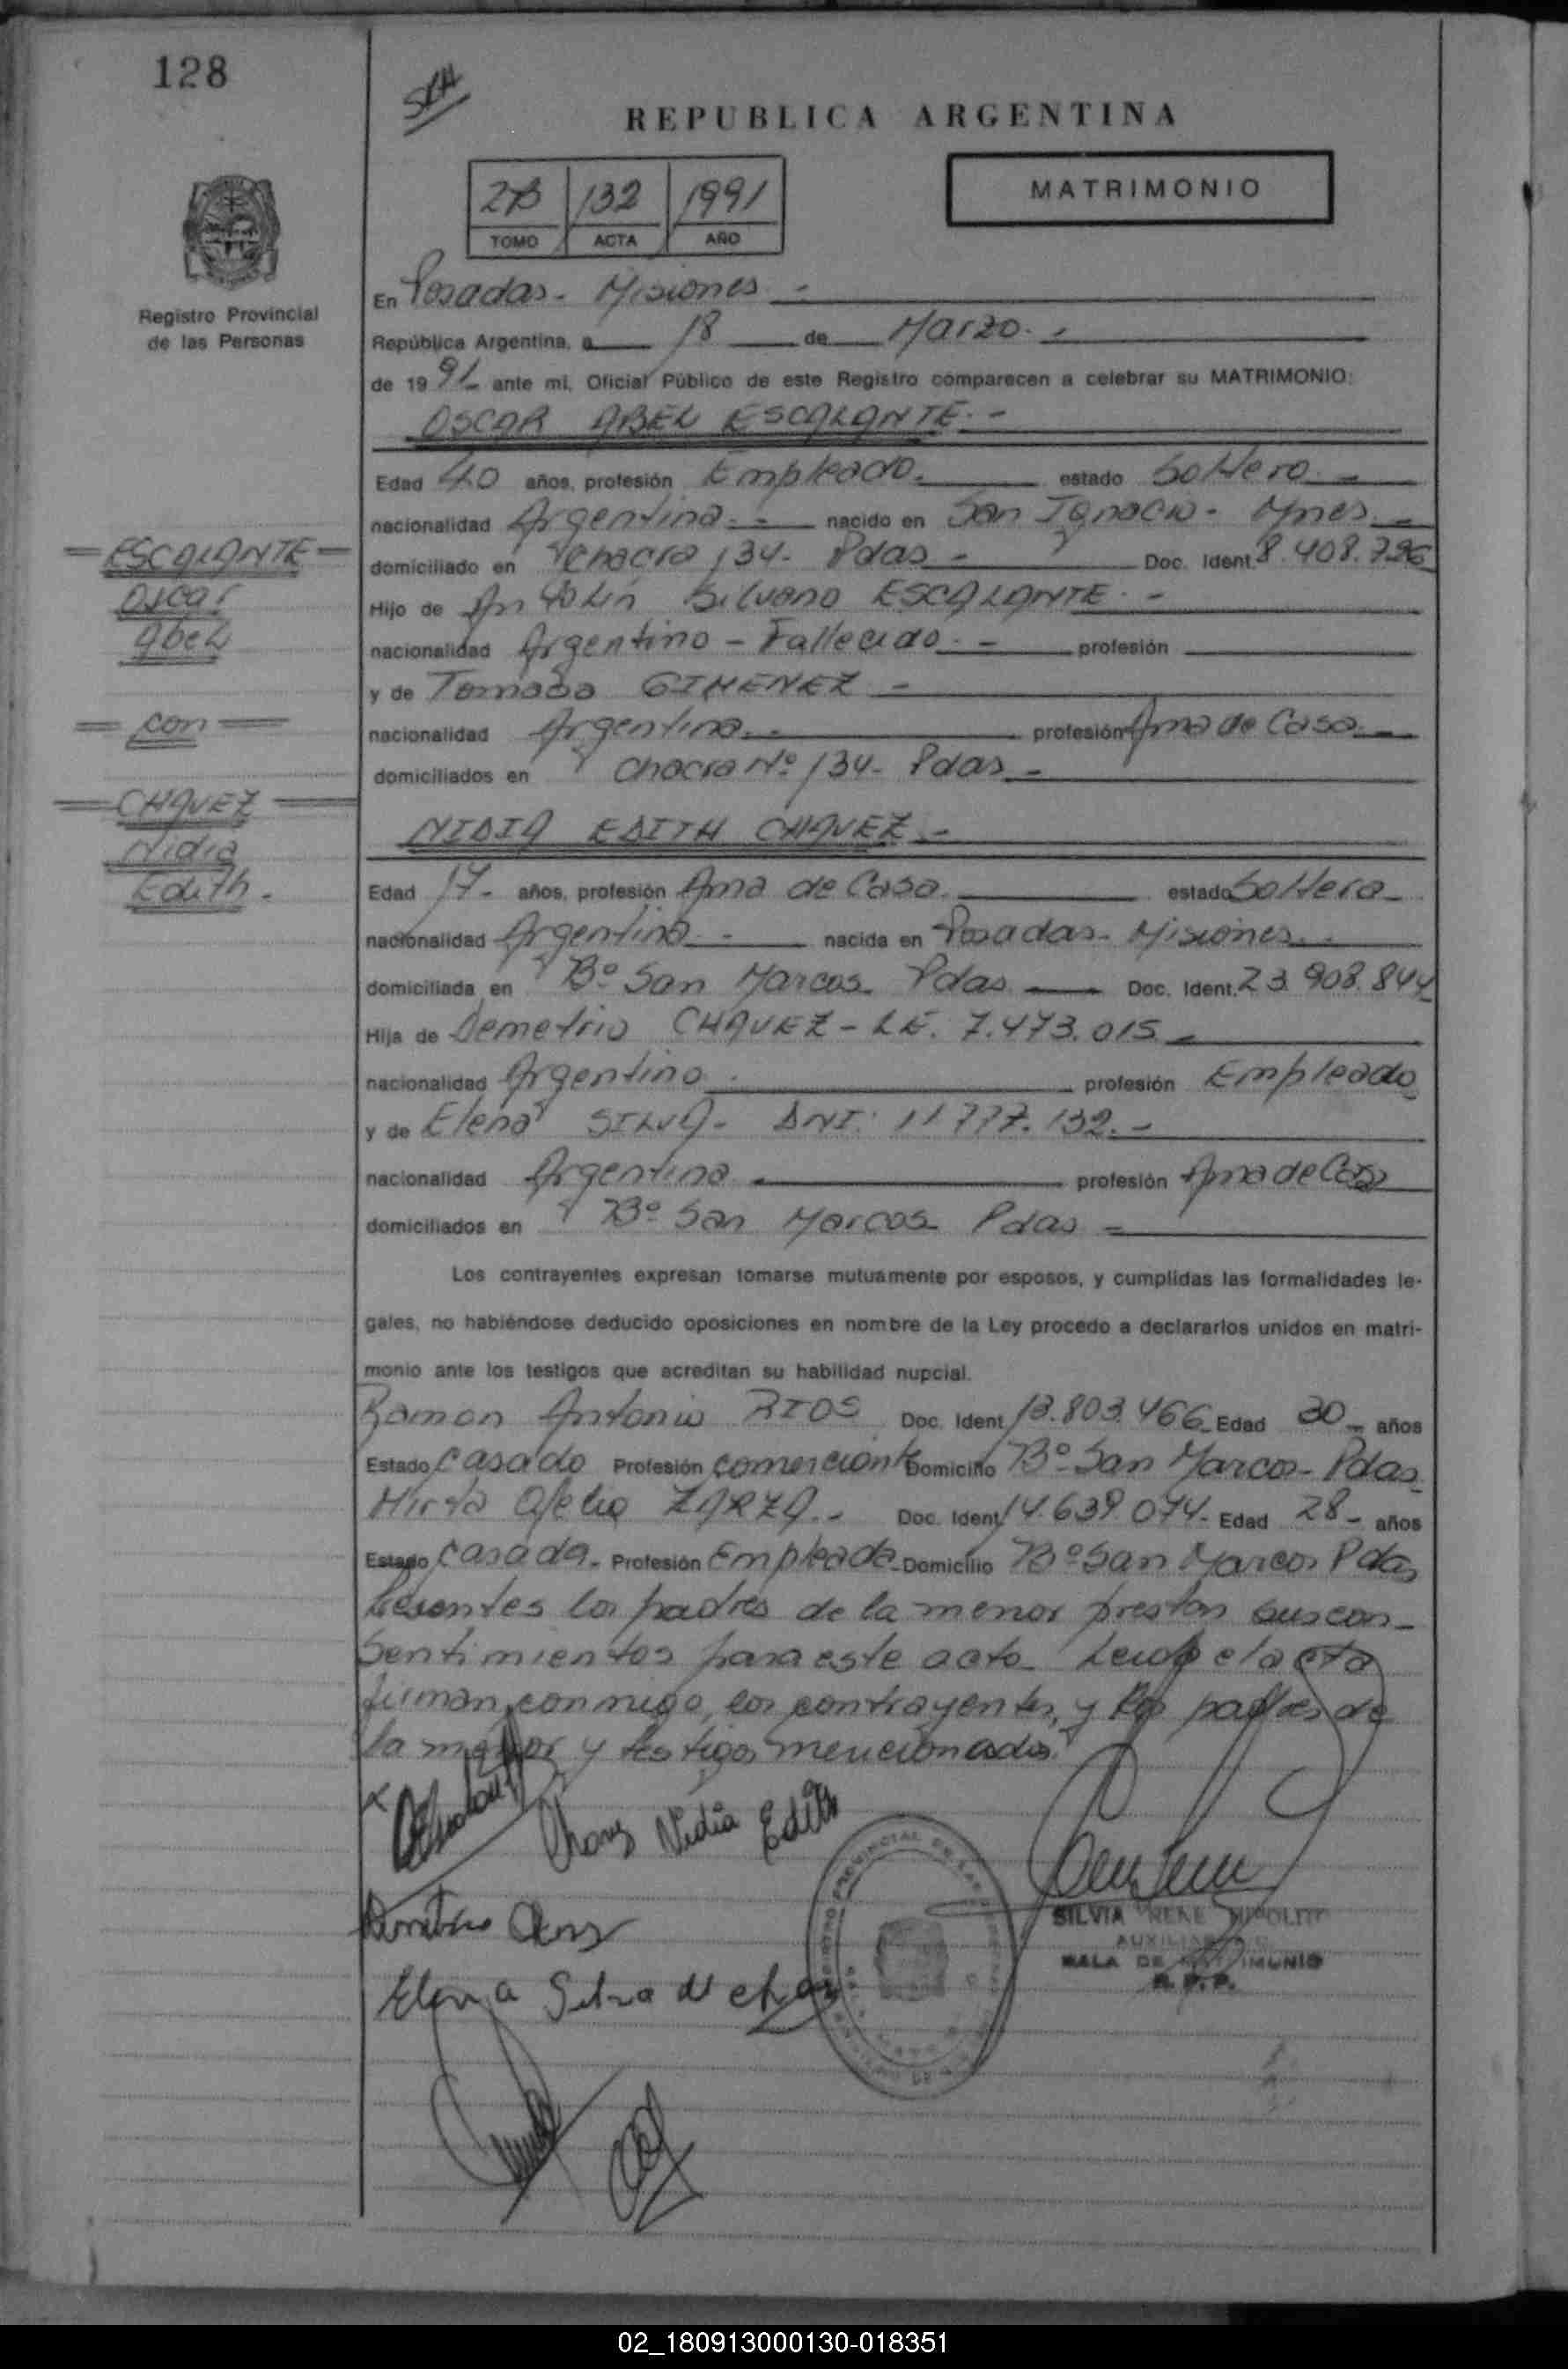 128
REPUBLICA ARGENTINA
2B 132 1991
TOMO ACTA AÑO
MATRIMONIO
Registro Provincial
de las Personas
En Posadas - Misiones -
República Argentina, a 18 de Marzo. -
de 1991 ante mi, Oficial Público de este Registro comparecen a celebrar su MATRIMONIO:
OSCAR ABEL ESCALANTE. -
Edad 40 años, profesión Empleado. estado Soltero. -
nacionalidad Argentina. - nacido en San Ignacio - Mnes. -
domiciliado en Chacra 134 - Pdas - Doc. Ident. 8.408.796
Hijo de Antolín Silvano ESCALANTE. -
nacionalidad Argentino - Fallecido. - profesión
y de Tomasa GIMENEZ -
nacionalidad Argentina. - profesión Ama de Casa. -
domiciliados en Chacra Nº 134 - Pdas -
NIDIA EDITH CHAVEZ -
Edad 17 - años, profesión Ama de Casa. estado Soltera -
nacionalidad Argentina - nacida en Posadas - Misiones. -
domiciliada en Bº San Marcos. Pdas Doc. Ident. 23.908.844
Hija de Demetrio CHAVEZ - LE. 7.473.015 -
nacionalidad Argentino. profesión Empleado
y de Elena SILVA - DNI: 11.777.132. -
nacionalidad Argentina profesión Ama de Casa
domiciliados en Bº San Marcos Pdas -
ESCALANTE
Oscar
Abel
con
CHAVEZ
Nidia
Edith -
Los contrayentes expresan tomarse mutuamente por esposos, y cumplidas las formalidades le-
gales, no habiéndose deducido oposiciones en nombre de la Ley procedo a declararlos unidos en matri-
monio ante los testigos que acreditan su habilidad nupcial.
Ramon Antonio RIOS Doc. Ident 13.803.466 - Edad 30 - años
Estado Casado Profesión comerciante Domicilio Bº San Marcos - Pdas
Mirta Ofelia ZARZA. - Doc. Ident 14.639.074 - Edad 28 - años
Estado Casada - Profesión Empleada - Domicilio Bº San Marcos Pdas
Presentes los padres de la menor prestan sus con-
sentimientos para este acto Leida el acta
firman conmigo, los contrayentes, y los padres de
la menor y testigos mencionados.
Chavez Nidia Edith
Elena Silva de Chavez
SILVIA RENE HIPOLITO
AUXILIAR
SALA DE MATRIMONIO
R. P. P.
02_180913000130-018351